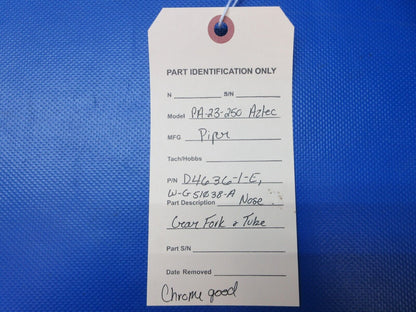 PART IDENTIFICATION ONLY
N S/N
Model PA-23-250 Aztec
MFG Piper
Tach/Hobbs
P/N D4636-1-E,
W-G51038-A
Part Description Nose
Gear Fork & Tube
Part S/N
Date Removed
Chrome good